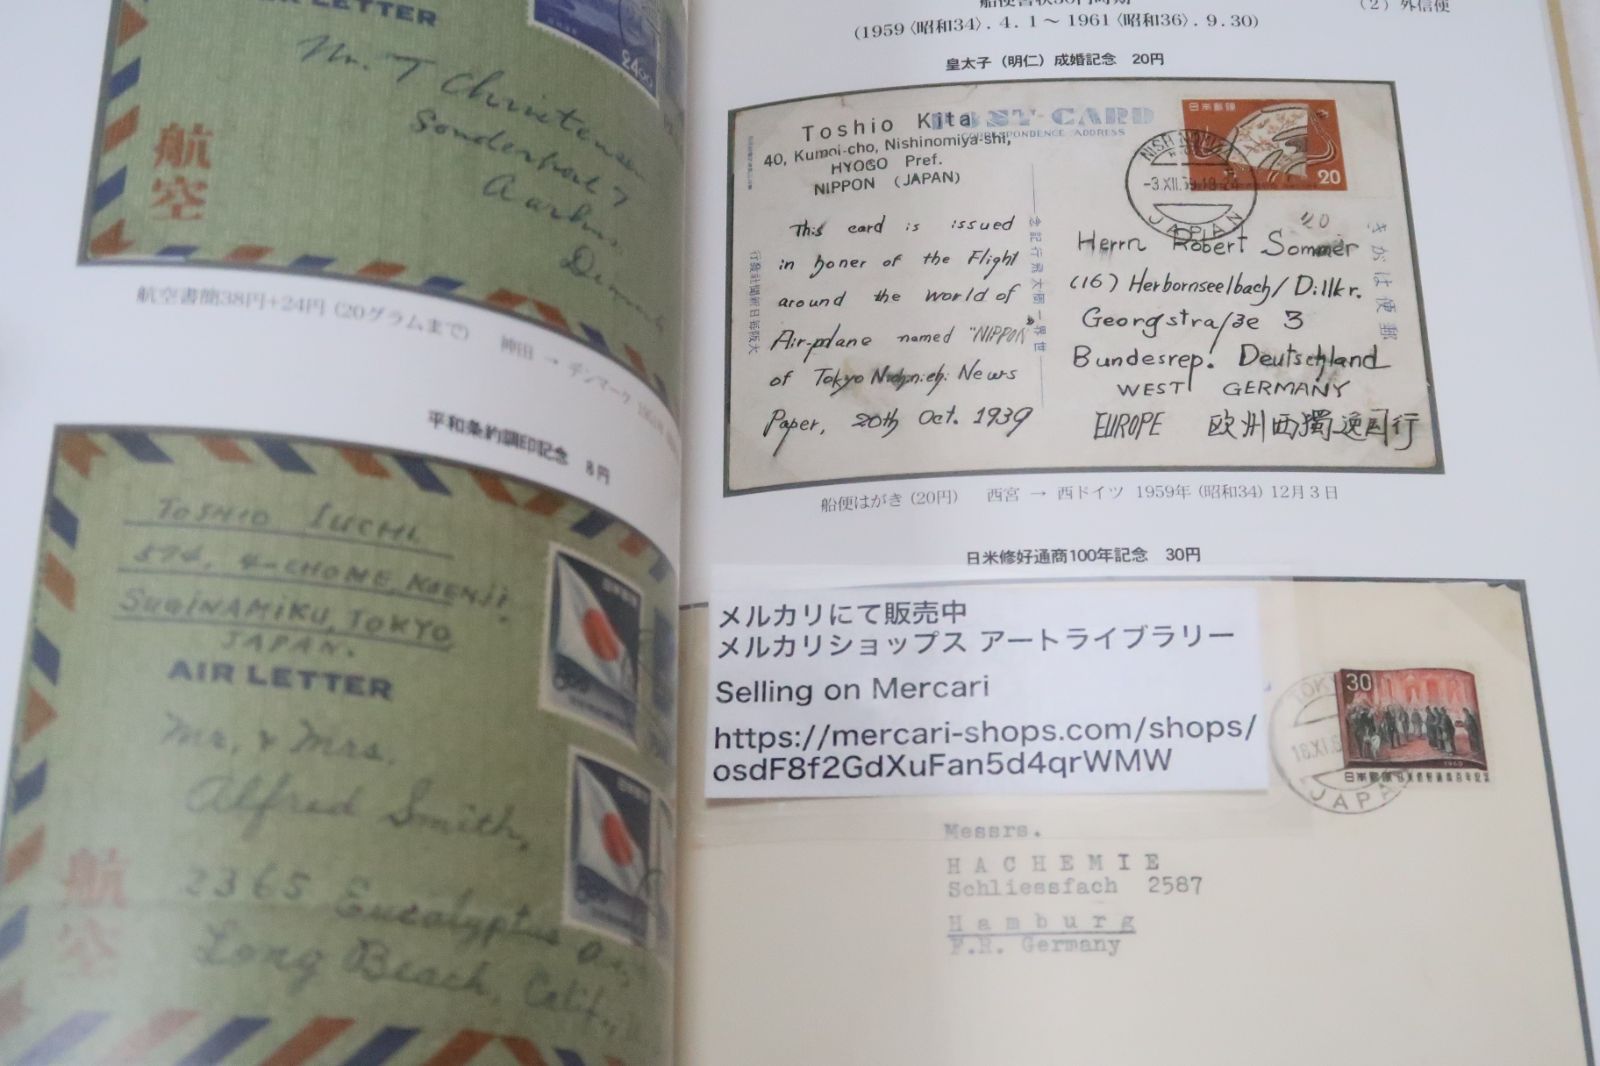 AIR LETTER
24 00
Mr. T Christensen
Sonderport 7
Aarhus
航空
航空書簡38円+24円 (20グラムまで) 神田 → デンマーク
平和条約調印記念 8円
TOSHIO IUCHI.
574, 4-CHOME, KOENJI
SUGINAMIKU, TOKYO
JAPAN.
AIR LETTER
Mr. & Mrs.
Alfred Smith,
2365 Eucalyptus
Long Beach, Calif.,
航空
(1959〈昭和34〉. 4. 1 ~ 1961〈昭和36〉. 9. 30)
(2) 外信便
皇太子 (明仁) 成婚記念 20円
POST CARD
CORRESPONDENCE ADDRESS
Toshio Kita
40, Kumoi-cho, Nishinomiya-shi,
HYOGO Pref.
NIPPON (JAPAN)
日本郵便
20
-3.XII.59.18-24
JAPAN
This card is issued
in honer of the Flight
around the world of
Air-plane named "NIPPON"
of Tokyo Nichinichi News
Paper, 20th Oct. 1939
念記行飛大周一界世
行發社聞新日每阪大
きがは便郵
Herrn Robert Sommer
(16) Herbornseelbach/Dillkr.
Georgstraße 3
Bundesrep. Deutschland
WEST GERMANY
EUROPE 欧州西獨逸国行
船便はがき (20円) 西宮 → 西ドイツ 1959年 (昭和34) 12月3日
日米修好通商100年記念 30円
メルカリにて販売中
メルカリショップス アートライブラリー
Selling on Mercari
https://mercari-shops.com/shops/
osdF8f2GdXuFan5d4qrWMW
30
1960
日本郵便 日米修好通商百年記念
JAPAN
Messrs.
HACHEMIE
Schliessfach 2587
Hamburg
F.R. Germany